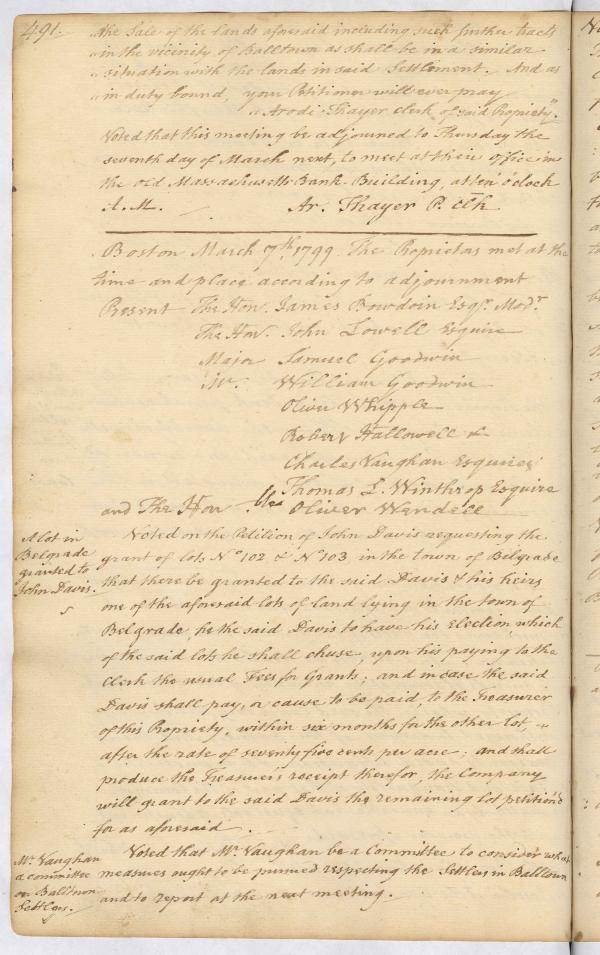 491.
"the Sale of the lands aforesaid including such further tracts
"in the vicinity of Balltown as shall be in a similar
"situation with the lands in said Settlement. And as
"in duty bound, your Petitioner will ever pray
"Arodi Thayer clerk of said Propriety".
Voted that this meeting be adjourned to Thursday the
seventh day of March next, to meet at their office in
the old Massachusetts Bank-Building, at ten o'clock
A.M. Ar. Thayer P. Clk
Boston March 7th. 1799. The Propietors met at the
time and place according to adjournment
Present The Hon. James Bowdoin Esqr. Modr.
The Hon. John Lowell Esquire
Major Samuel Goodwin
Mr. William Goodwin
Oliver Whipple
Robert Hallowell &
Charles Vaughan Esquires
Thomas L. Winthrop Esquire
and The Hon Oliver Wendell
A lot in
Belgrade
granted to
John Davis.
Voted on the Petition of John Davis requesting the
grant of lots No. 102 & No. 103 in the town of Belgrade
that there be granted to the said Davis & his heirs
one of the aforesaid lots of land lying in the town of
Belgrade, he the said Davis to have his Election, which
of the said lots he shall chuse, upon his paying to the
Clerk the usual Fees for Grants; and in case the said
Davis shall pay, or cause to be paid, to the Treasurer
of this Propriety, within six months for the other lot,
after the rate of seventy five cents per acre; and shall
produce the Treasurer's receipt therefor, the Company
will grant to the said Davis the remaining lot petition'd
for as aforesaid.
Mr. Vaughan
a committee
on Balltown
Settlers.
Voted that Mr. Vaughan be a Committee to consider what
measures ought to be pursued respecting the Settlers in Balltown
and to report at the next meeting.